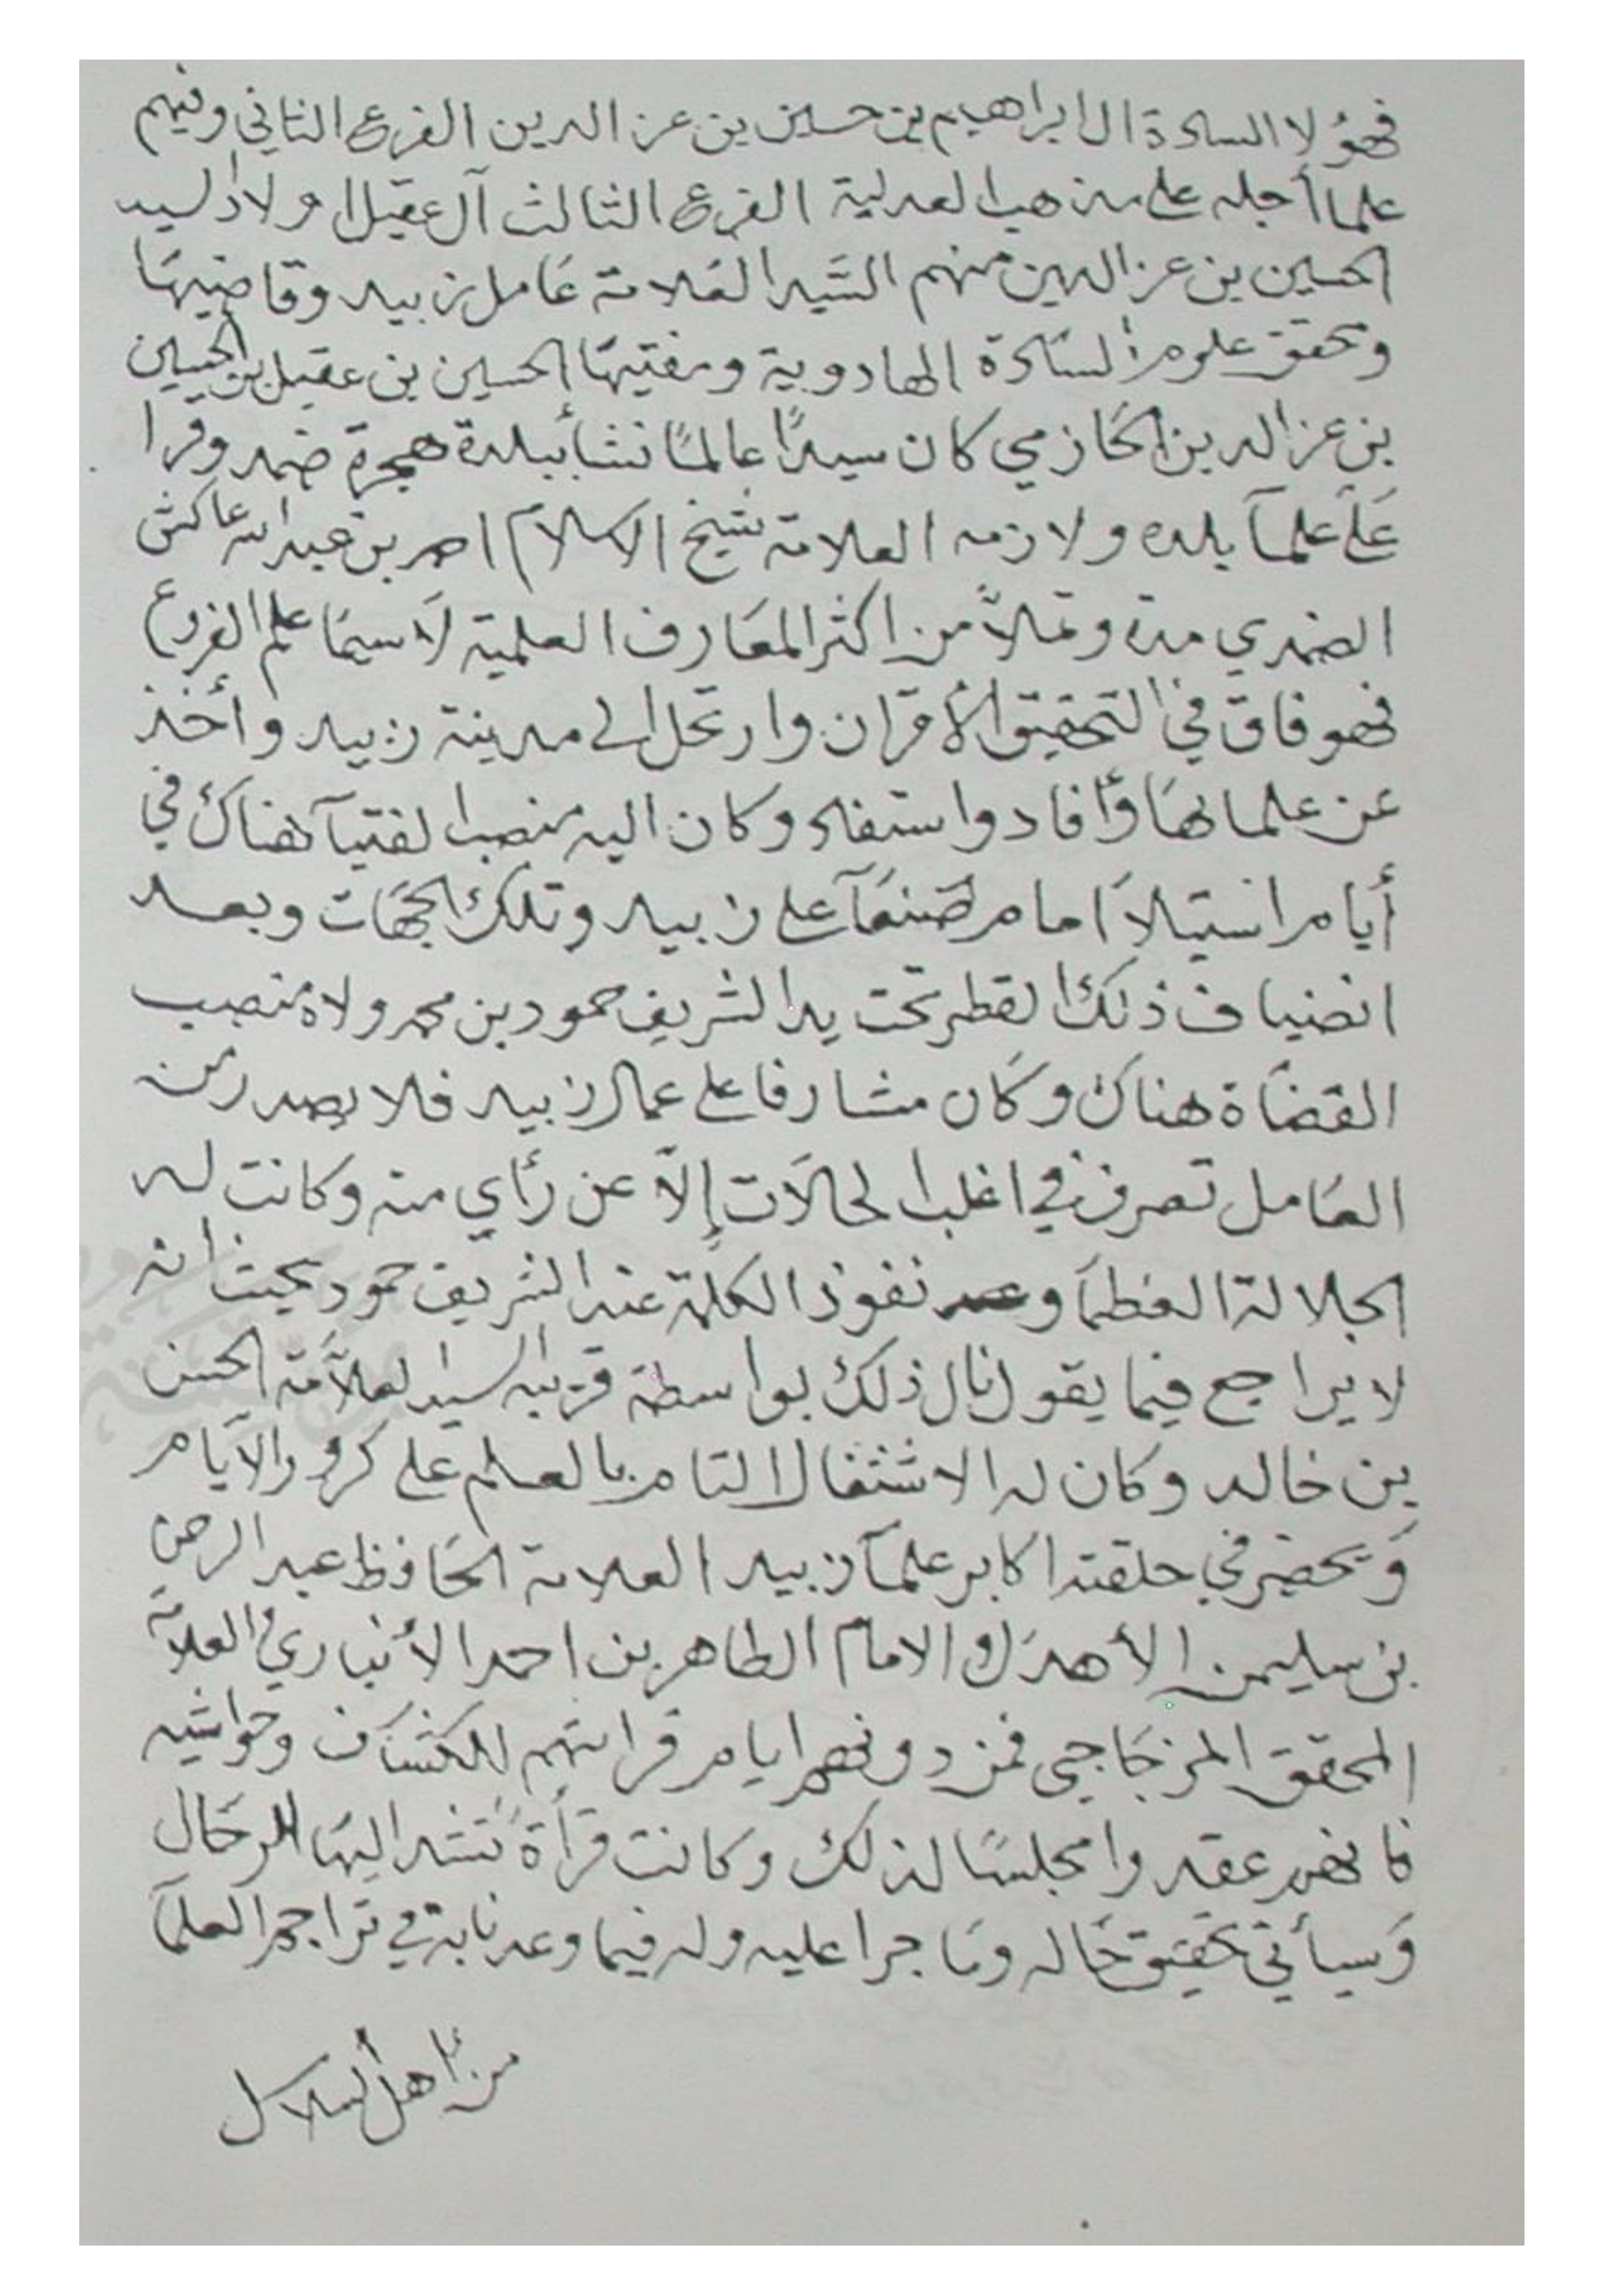 فهؤلا السادة ال ابراهيم بن حسين بن عز الدين الفرع الثاني وفيهم
علما أجله على مذهب العدلية الفرع الثالث آل عقيل اولاد السيد
الحسين بن عز الدين منهم السَّيد العَلامة عَامل زبيد وقاضيهَا
وتحقق علوم السَّادة الهادوية ومفتيهَا الحسين بن عقيل بن الحسين
بن عز الدين الحَازمي كان سيدًا عالمًا نشأ ببلدة هجرة ضمد وقرا
عَلى علمآ بلده ولازمه العلامة شيخ الاسلام احمد بن عبد الله عاكش
الضمدي مدة وتملأ من اكثر المعَارف العلمية لآسيمَا علم الفروع
فهو فاق في التحقيق الأقران وارتحل الى مدينة زبيد وأخذ
عن علمائهَا وأفاد واستفاد وكان اليه منصب الفتيآ هناك في
أيام استيلآ امام صَنعَآ على زبيد وتلك الجهَات وبعد
انضياف ذلك القطر تحت يد الشريف حمود بن محمد ولاه منصب
القضَاة هناك وكَان مشارفا على عمال زبيد فلا يصدر من
العَامل تصرف في اغلب الحالآت إلآ عن رأي منه وكانت له
الجلالة العظمآ و نفوذ الكلمة عند الشريف حمود بحيث انه
لا يراجع فيما يقول نال ذلك بواسطة قريبه السيد العلآمة الحسن
بن خالد وكان له الاشتغال التام بالعلم على كرور الآيَام
وَتحضر في حلقته اكابر علمآ زبيد العلامة الحَافظ عبد الرحمن
بن سليمن الأهدَل والامام الطاهر بن احمد الأنباري والعلامة
المحقق المزجَاجي فمن دونهم ايام قرائتهم للكشَاف وحَواشيه
فانهم عقدوا مجلسًا لذلك وكانت قرأة تُشد اليهَا الرحَال
وَسيأتي تحقيق حَاله ومَا جرا عليه وله فيما وعدنا به في تراجم العلمآ
من أهل السلاسل